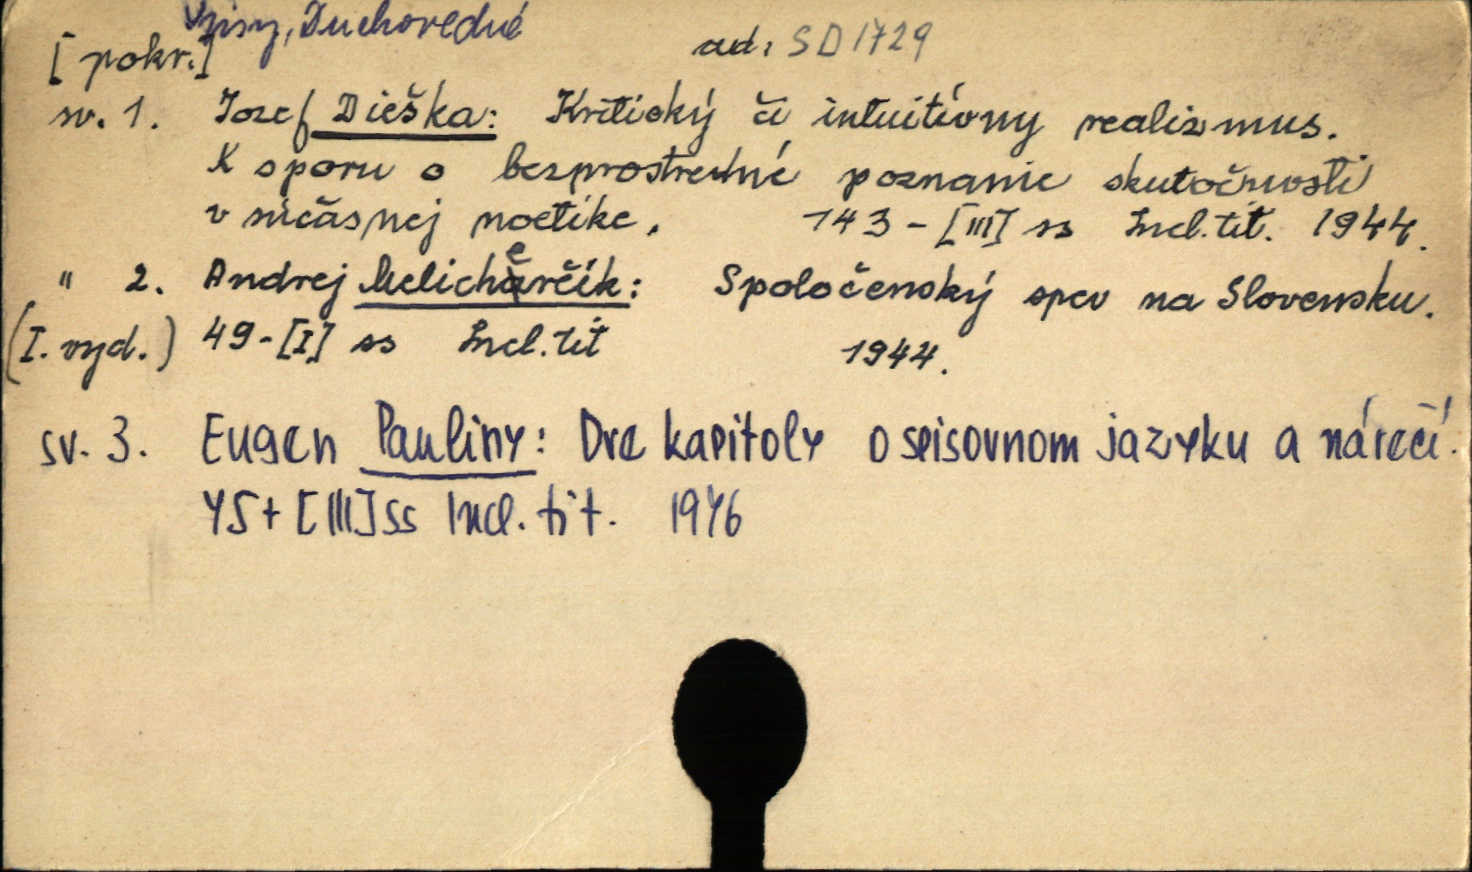 Spisy, Duchovedné
[pokr.] ad: SD 1729
sv. 1. Jozef Dieška: Kritický či intuitívny realizmus.
K sporu o bezprostredné poznanie skutočnosti
v súčasnej noetike. 143-[III] ss Incl. tit. 1944.
" 2. Andrej Melicherčík: Spoločenský spev na Slovensku.
(I. vyd.) 49-[I] ss Incl. tit 1944.
sv. 3. Eugen Pauliny: Dve kapitoly o spisovnom jazyku a nárečí.
45+[III] ss Incl. tit. 1946